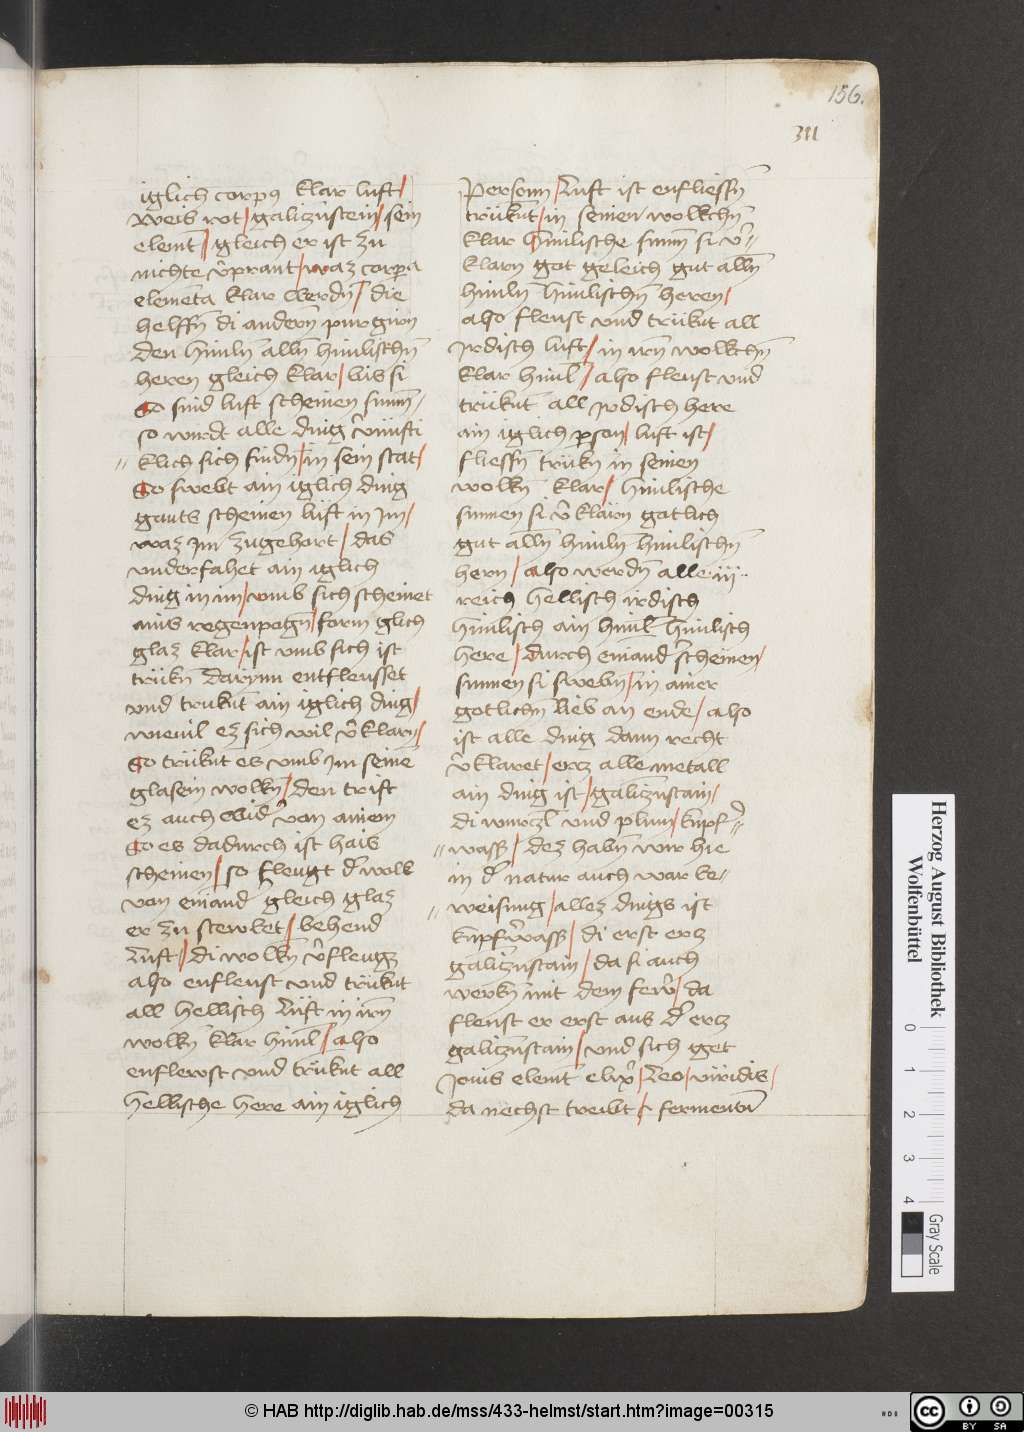 156.
311
iglich corpꝰ klar luft /
weis rot / galiczūstein / sein
elemt̄ / gleich er ist zu
nichte v̄prant / waz corpꝑa
elemēta klar werdn̄ / die
helffn̄ di andern̄ purgirn
den himln̄ alln̄ himlischn̄
heren gleich klar / bis si
So sind luft scheinen sunn̄ /
so wirdt alle ding v̄nuͤfti
klich sich findn̄ / in sein stat /
So swebt ain iglich ding
gants scheinen luft in im /
waz im zugehort / das
vnderfahet ain iglich
ding in im / vmb sich scheinet
ains regenpogn̄ / form glich
glaz klar / ist vmb sich ist
truͤkn̄ darynn entfleusset
vnd trukn̄t ain iglich ding /
wievil ez sich wil v̄klarn̄ /
So truͤknt es vmb im seinē
glasein wolkn̄ / den trift
ez auch wid̄ von ainem
So es dadurch ist hais
scheinen / so fleugt d̄ wolk
von einand̄ gleich glaz
er zu stewbet / behend
Luft / di wolkn̄ v̄fleugz
also enfleust vnd truͤknt
all hellisch Luͤft in irn̄
wolkn̄ klar himl̄ / also
enflewst vnd truͤknt all
hellische here ain iglich
Personn / Luft ist enfliessn̄
truͤknt / in seinen wolkchn̄
klar himlische sunn̄ si v̄
klarn got geleich gut alln̄
himln̄ himlischn̄ heren /
also fleust vnd truͤknt all
irdisch luft / in irn̄ wolkchn̄
klar himl̄ / also fleust vnd
truͤknt all irdisch here
ain iglich ꝑson / luft ist /
fliessn̄ truͤkn̄ in seinen
wolkn̄ klar / himlische
sunnen si v̄klarn gotlich
gut alln̄ himln̄ himlischn̄
hern / also werdn̄ alle iij
reich hellisch irdisch
himlisch ain himl̄ himlisch
here / durch einand̄ scheinen /
sunnen si swebn̄ / in ainer
gotlichn̄ lieb an ende / also
ist alle ding dann recht
v̄klaret / ercz alle metall
ain ding ist / galiczn̄stain /
di wurczl̄ vnd plum / kupf̄
wass̄ / dez habn̄ wir hie
in d̄ natur auch war be
weisung / allez dings ist
kupf̄wass̄ / di erst ercz
galiczn̄stain / da si auch
werkn̄ mit dem few̄ / da
fleust er erst aus d̄ ercz
galiczn̄stain / vnd sich get
Jouis elemt̄ elix̄ / Leo / viridis /
da nechst treibt / fermentū
Herzog August Bibliothek
Wolfenbüttel
0 1 2 3 4
Gray Scale
© HAB http://diglib.hab.de/mss/433-helmst/start.htm?image=00315
cc BY SA